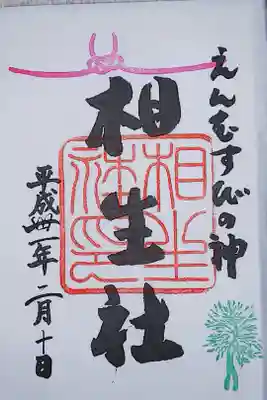 えんむすびの神
相生社
相生社印
平成卅一年二月十日